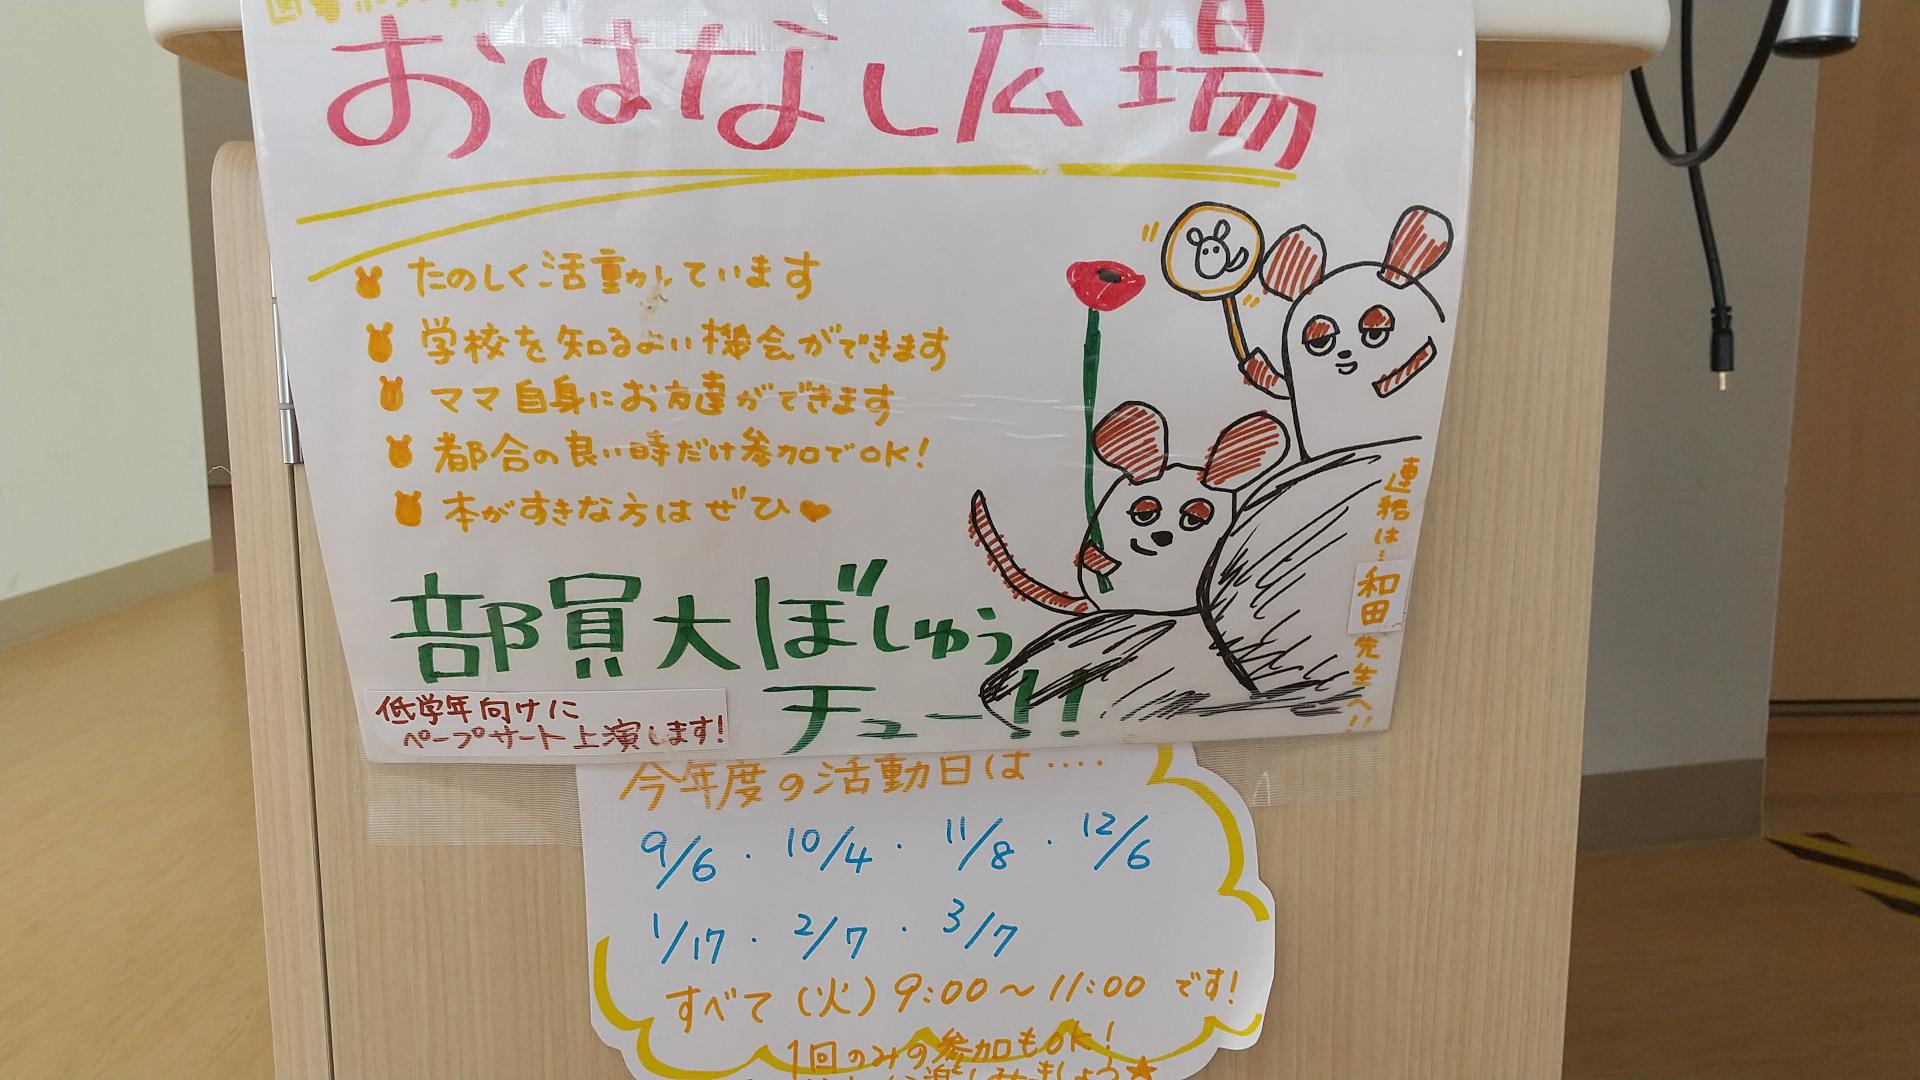 おはなし広場
たのしく活動しています
学校を知るよい機会ができます
ママ自身にお友達ができます
都合の良い時だけ参加でOK!
本がすきな方はぜひ♥
部員大ぼしゅう
チュー!!
低学年向けに
ペープサート上演します!
連絡は…和田先生へ!!
今年度の活動日は‥‥
9/6・10/4・11/8・12/6
1/17・2/7・3/7
すべて(火)9:00〜11:00です!
1回のみの参加もOK!
楽しみましょう★